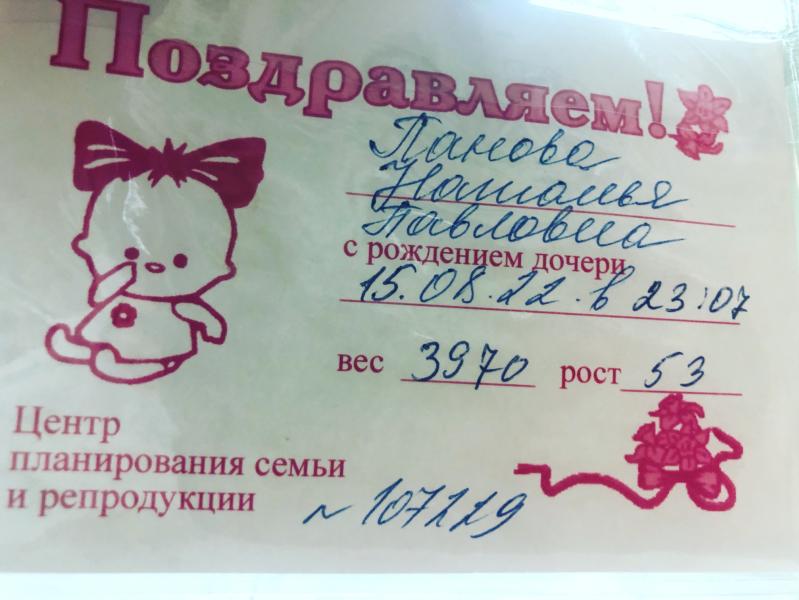 Поздравляем!
Панова
Наталья
Павловна
с рождением дочери
15.08.22. в 23:07
вес 3970 рост 53
Центр
планирования семьи
и репродукции
~ 107229